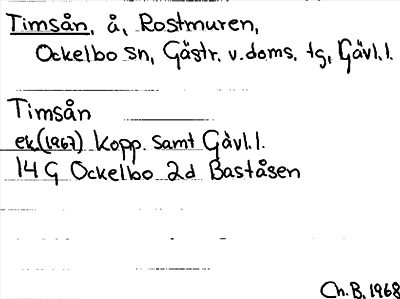 Timsån, å, Rostmuren,
Ockelbo sn, Gästr. v. doms. tg, Gävl. l.
Timsån
ek. (1967) Kopp. samt Gävl. l.
14 G Ockelbo 2d Baståsen
Ch. B. 1968